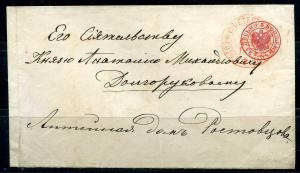 Его Сіятельству
Князю Анатолію Михайловичу
Долгоруковому
домъ Ростовцова